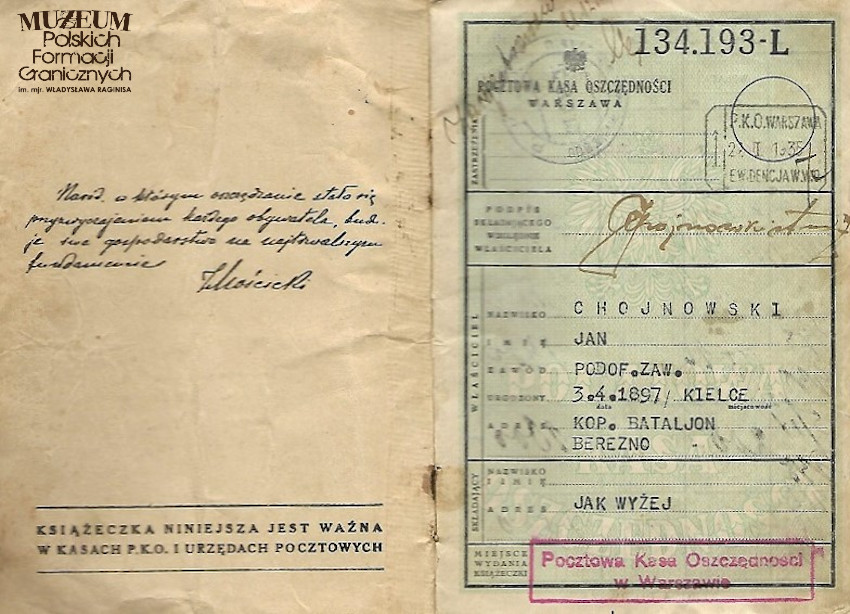 MUZEUM
Polskich
Formacji
Granicznych
im. mjr. WŁADYSŁAWA RAGINISA
Naród, w którym oszczędzanie stało się
przyzwyczajeniem każdego obywatela, budu-
je swe gospodarstwo na najtrwalszym
fundamencie
I Mościcki
KSIĄŻECZKA NINIEJSZA JEST WAŻNA
W KASACH P.K.O. I URZĘDACH POCZTOWYCH
134.193-L
POCZTOWA KASA OSZCZĘDNOŚCI
WARSZAWA
P.K.O. WARSZAWA
EWIDENCJA W.W.O
ZASTRZEŻENIA
PODPIS
SKŁADAJĄCEGO
WZGLĘDNIE
WŁAŚCICIELA
Chojnowski
WŁAŚCICIEL
NAZWISKO CHOJNOWSKI
IMIĘ JAN
ZAWÓD PODOF.ZAW.
URODZONY 3.4.1897/ KIELCE
data miejscowość
ADRES KOP. BATALJON
BEREZNO
SKŁADAJĄCY
NAZWISKO
I IMIĘ
ADRES JAK WYŻEJ
MIEJSCE
WYDANIA
KSIĄŻECZKI
Pocztowa Kasa Oszczędności
w Warszawie